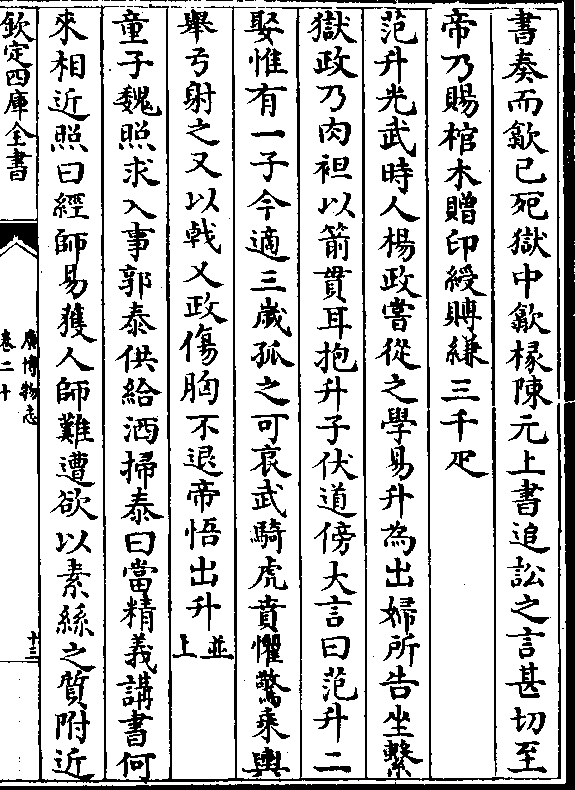 書奏而歙已死獄中歙掾陳元上書追訟之言甚切至
帝乃賜棺木贈印綬賻縑三千疋
范升光武時人楊政嘗從之學易升為出婦所告坐繫
獄政乃肉袒以箭貫耳抱升子伏道傍大言曰范升二
娶惟有一子今適三歲孤之可哀武騎虎賁懼驚乘輿
舉弓射之又以戟叉政傷胸不退帝悟出升並上
童子魏照求入事郭泰供給洒掃泰曰當精義講書何
來相近照曰經師易獲人師難遭欲以素絲之質附近
欽定四庫全書
廣博物志
卷二十
十三